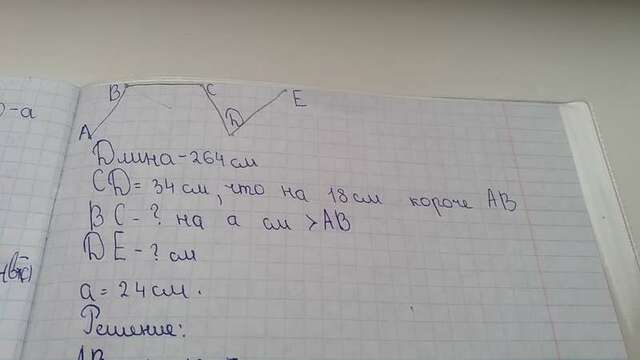 A B C D E
Длина - 264 см
CD = 34 см, что на 18 см короче AB
BC - ? на a см > AB
DE - ? см
a = 24 см.
Решение: